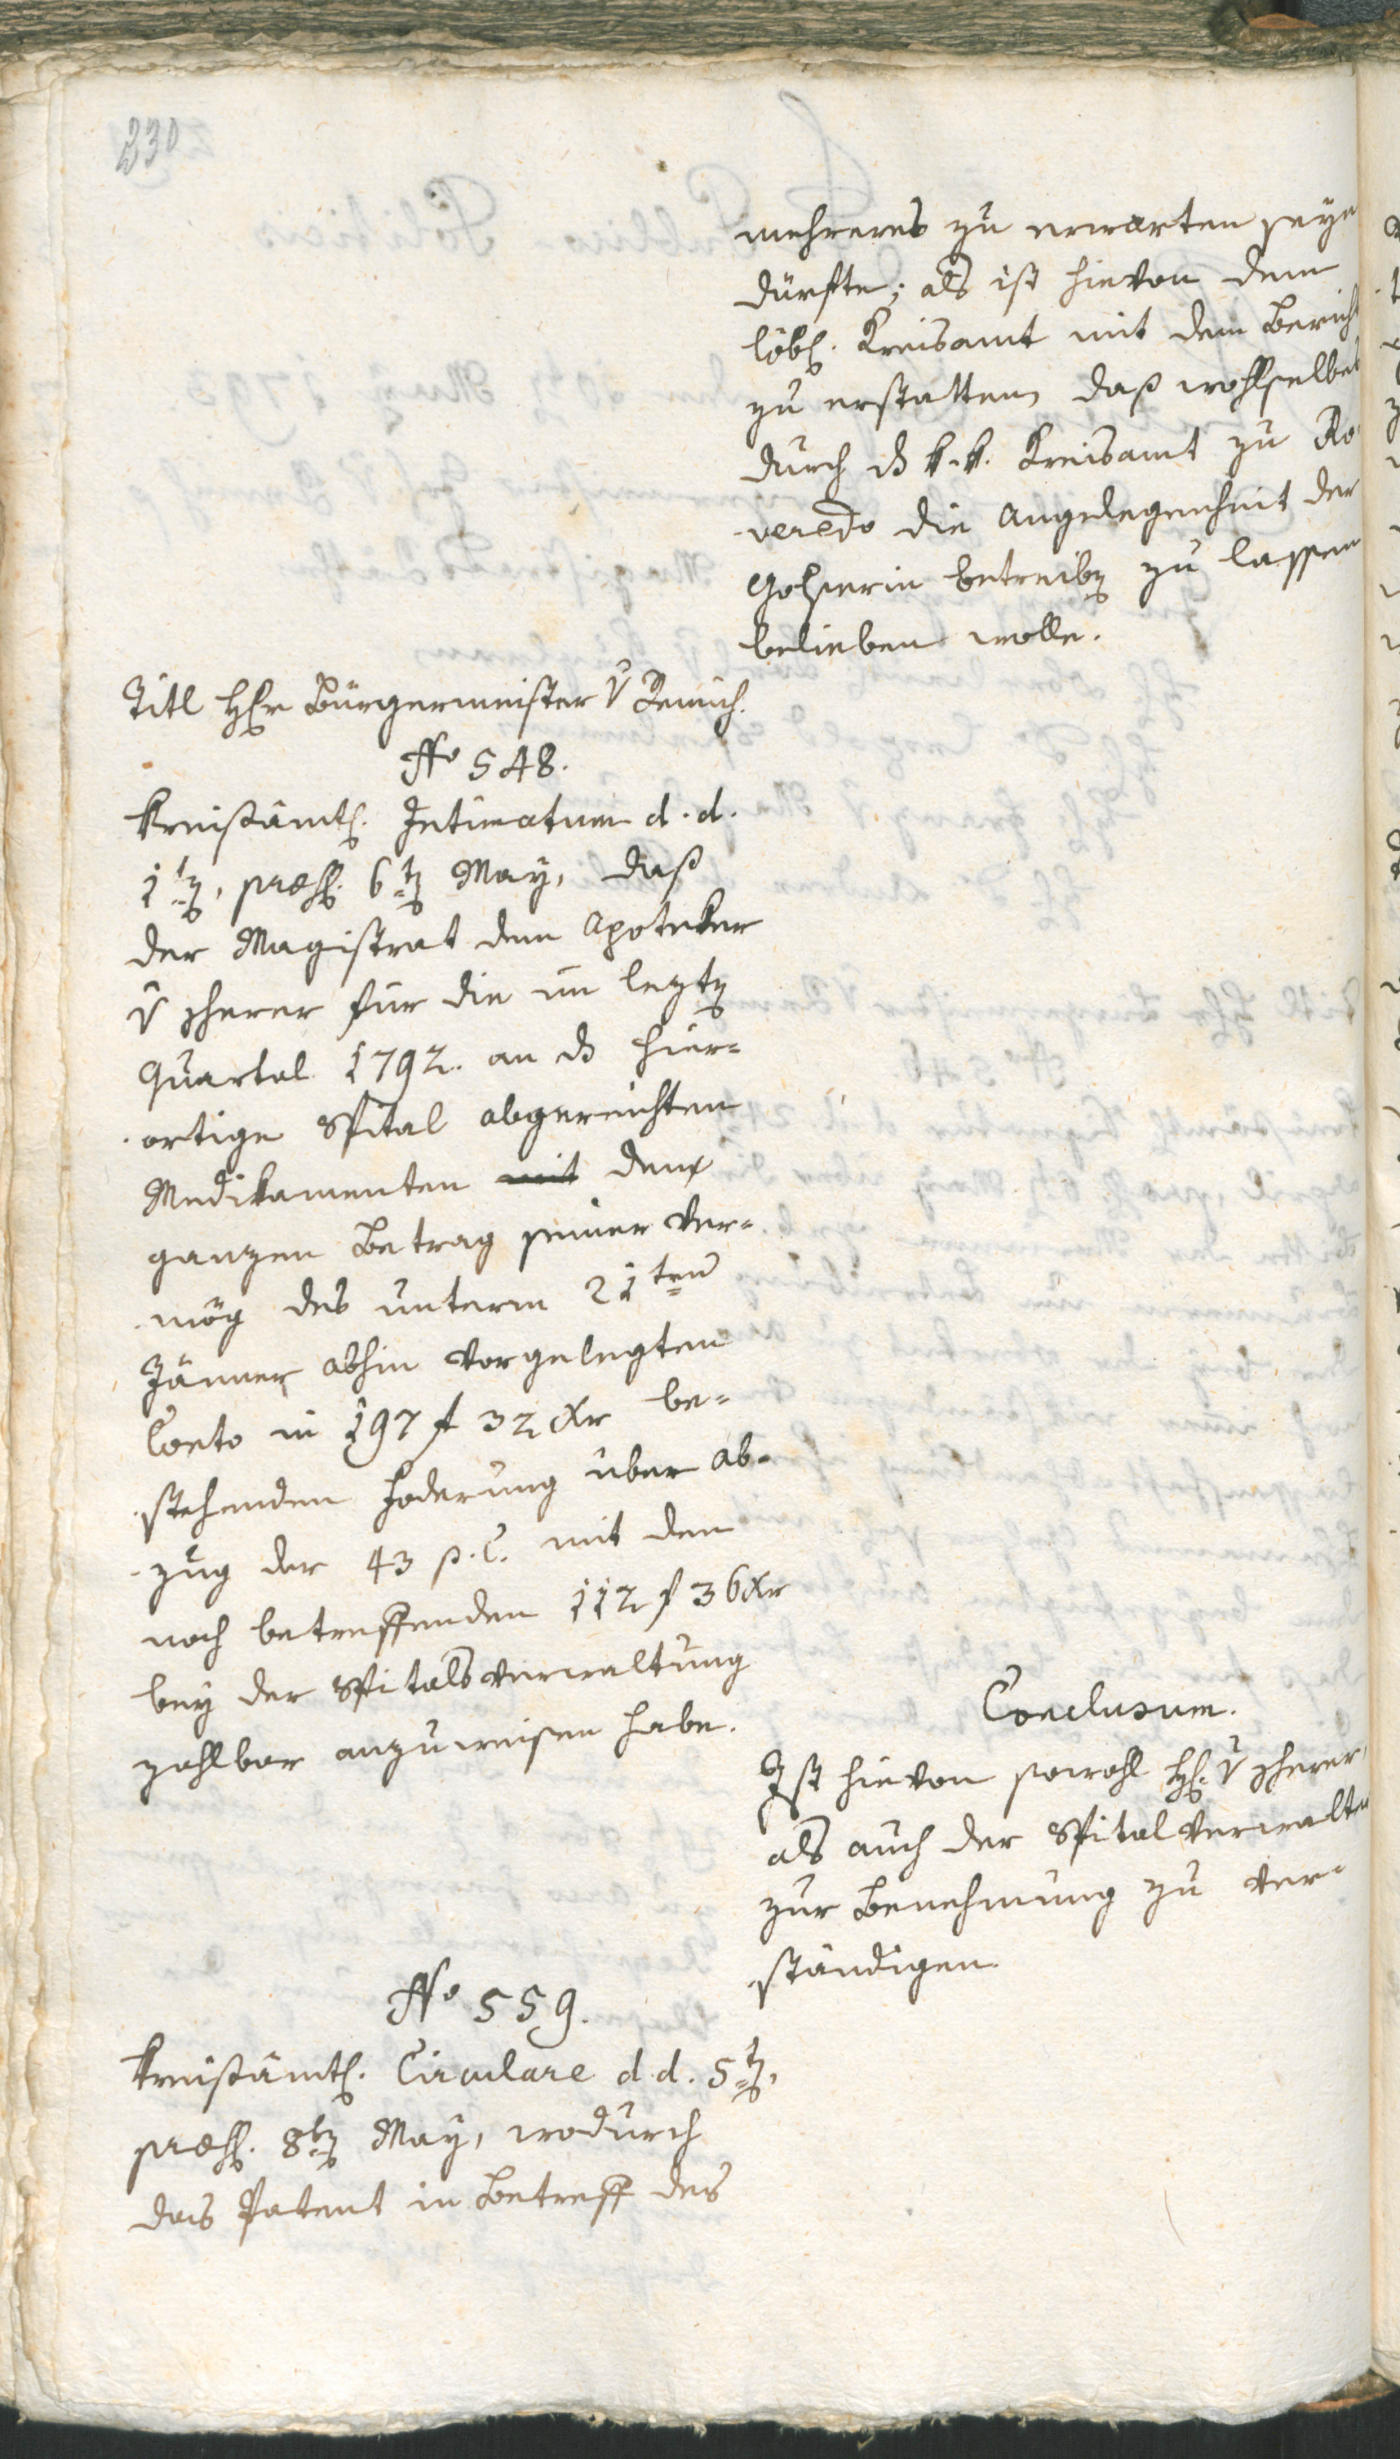 230
mehreres zu erwarten seye
dürfte; als ist hievon dem
löbl. Kreisamt mit dem Bericht
zu erstatten, daß wohlselbes
durch ds k. k. Kreisamt zu Ro
veredo die Angelegenheit der
Golserin betreiben zu lassen
belieben wolle.
Titl Hr Bürgermeister v
No 548.
Kreisämtl. Intimatum d. d.
1ten, præs. 6ten May, daß
der Magistrat dem Apoteker
v für die im lezten
Quartal 1792. an ds hier=
ortige Spital abgereichten
Medikamenten mit dem
ganzen Betrag seiner ver=
mög des unterm 21ten
Jänner abhin vorgelegten
Conto in 197 f 32 Xr be=
stehenden Foderung über Ab=
zug der 43 p. C. mit den
noch betreffenden 112 f 36 Xr
bey der Spitalsverwaltung
zahlbar anzuweisen habe.
Conclusum.
Ist hievon sowohl H. v
als auch der Spitalverwalter
zur Benehmung zu ver=
ständigen.
No 559.
Kreisämtl. Circulare d. d. 5ten,
præs. 8ten May, wodurch
das Patent in Betreff des